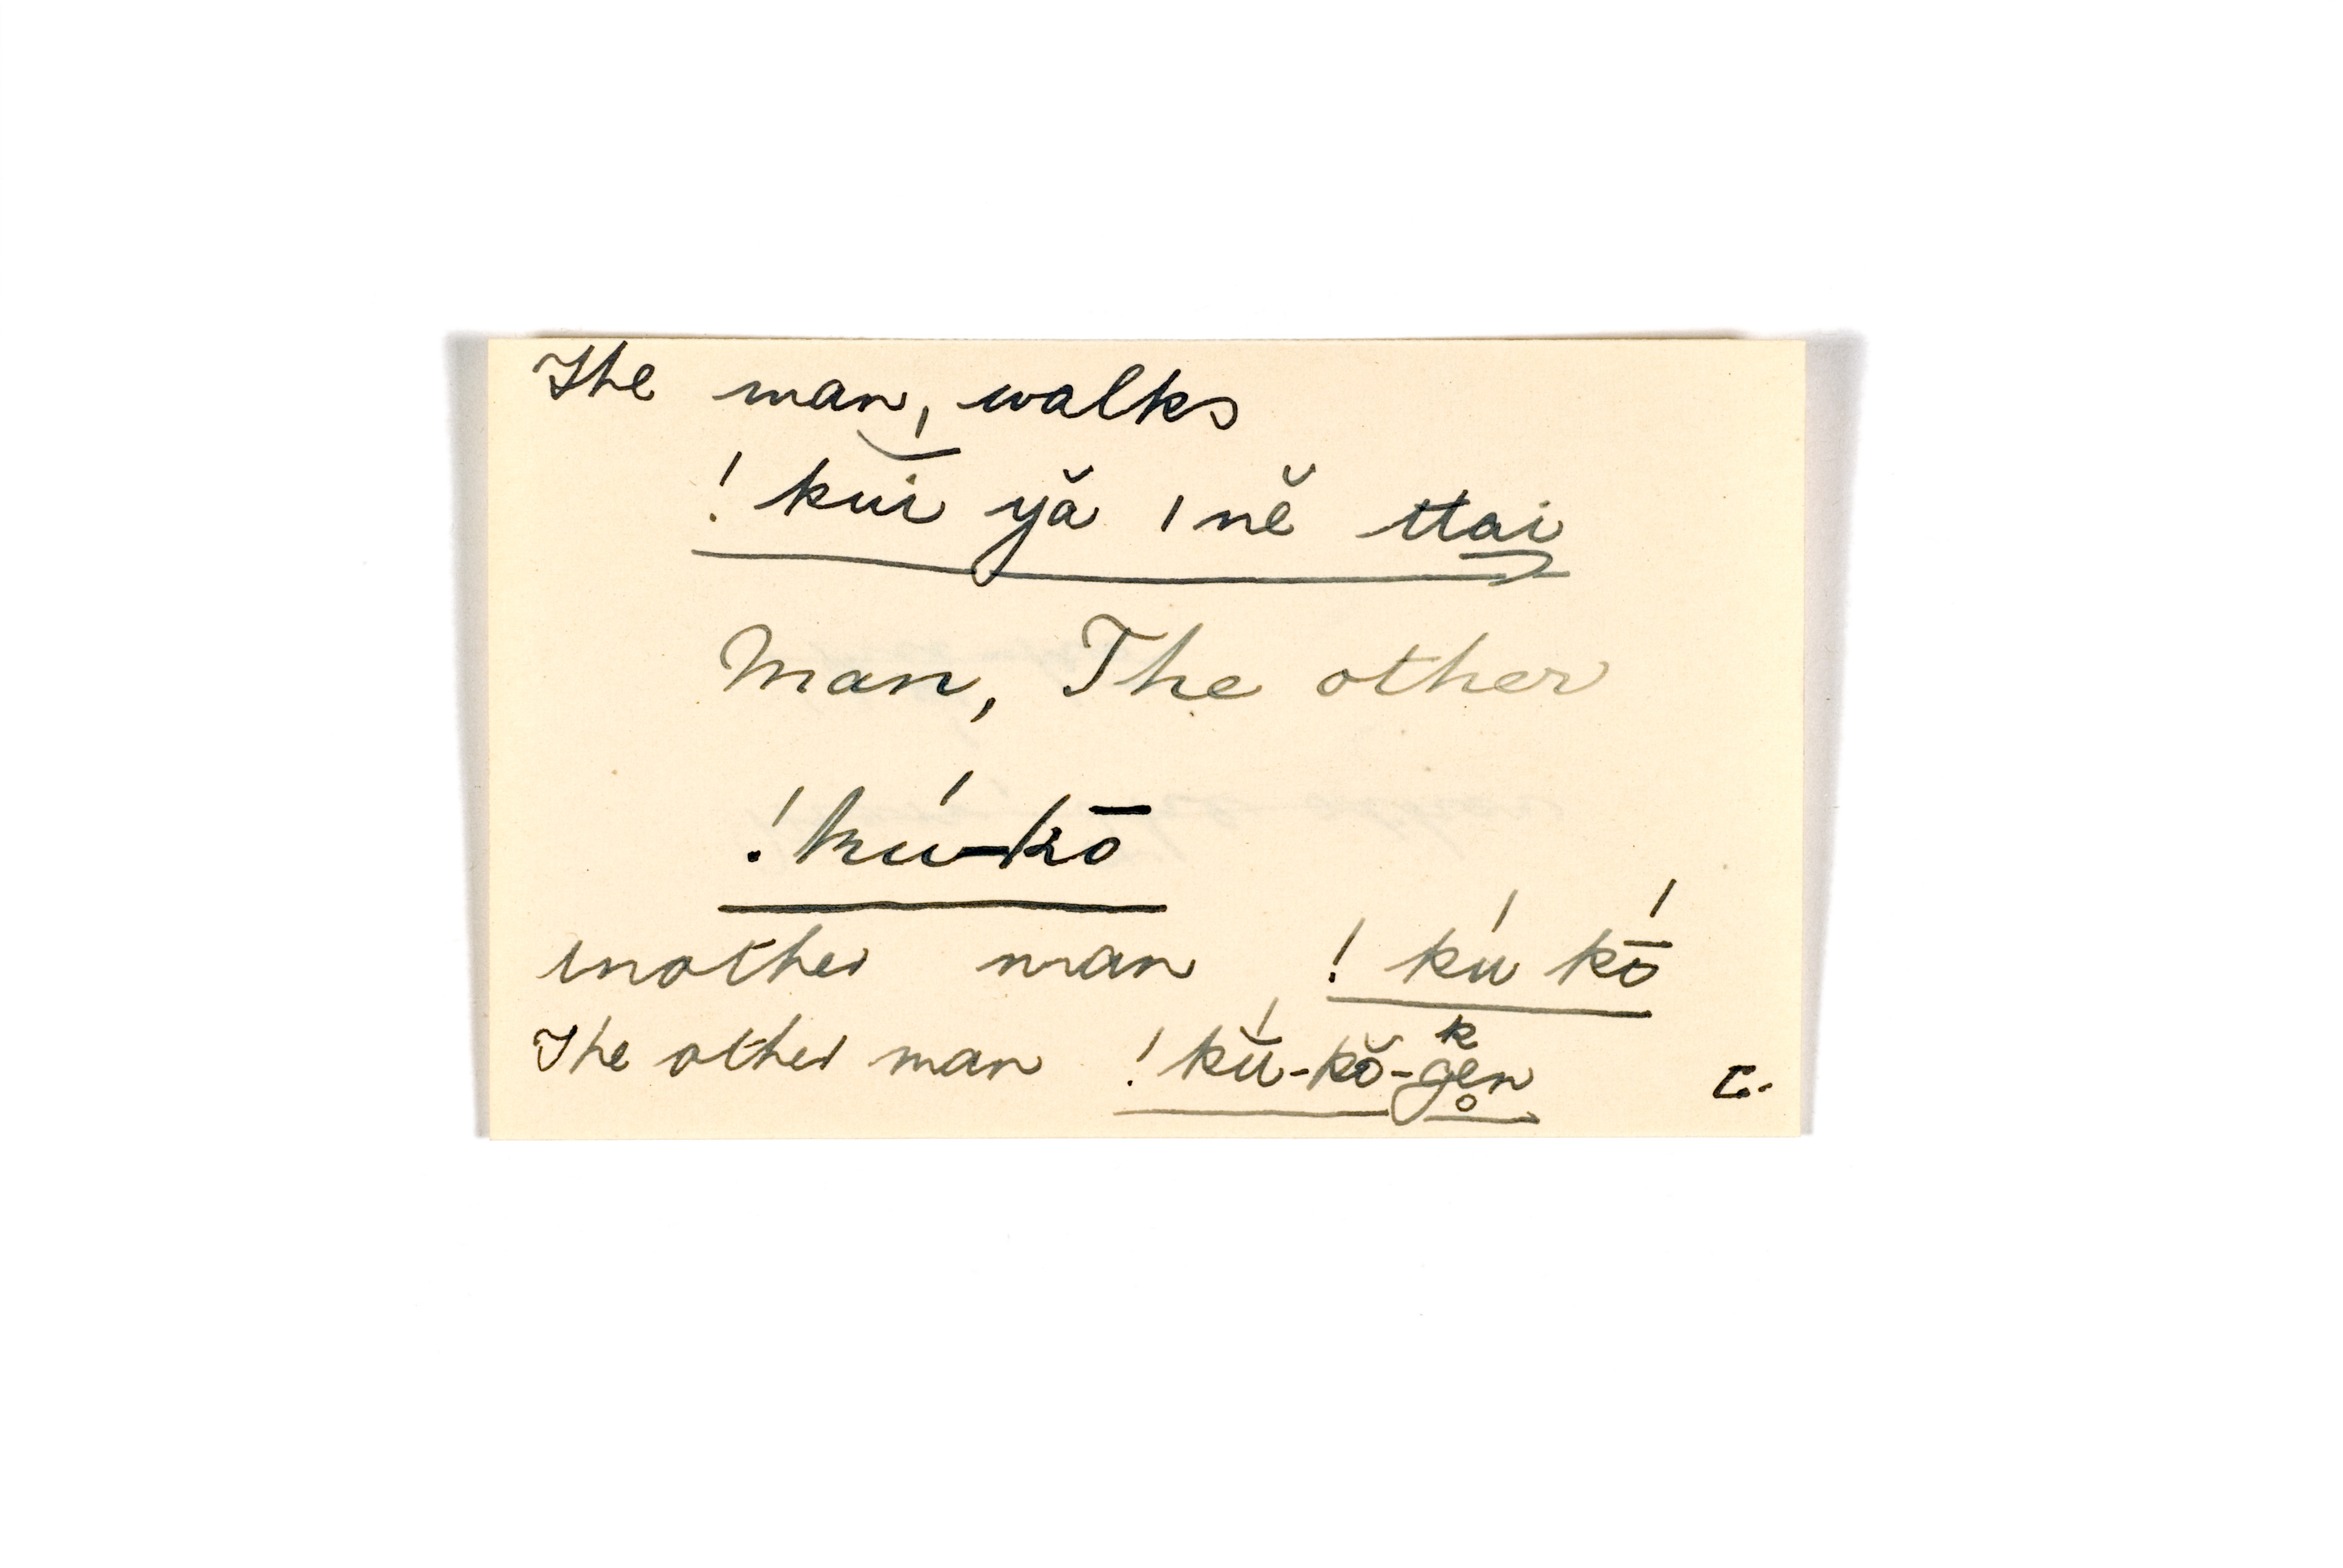 The man, walks
!kuí yă ǀnĕ ttai
Man, The other
!kú-kō
another man !kú kṓ
The other man !kŭ́-kŏ-gen
k
C.